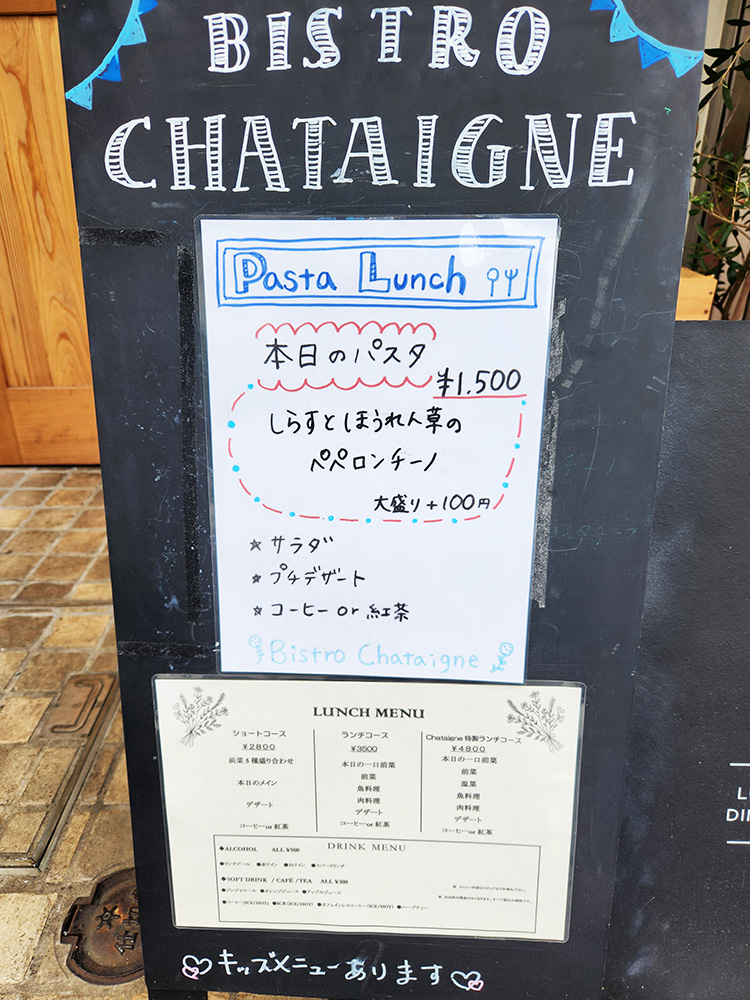 BISTRO
CHATAIGNE
Pasta Lunch
本日のパスタ
¥1,500
しらすとほうれん草の
ペペロンチーノ
大盛り+100円
☆サラダ
☆プチデザート
☆コーヒーor紅茶
Bistro Chataigne
LUNCH MENU
ショートコース
¥2800
前菜5種盛り合わせ
本日のメイン
デザート
コーヒーor紅茶
ランチコース
¥3500
本日の一口前菜
前菜
魚料理
肉料理
デザート
コーヒーor紅茶
Chataigne 特製ランチコース
¥4800
本日の一口前菜
前菜
温菜
魚料理
肉料理
デザート
コーヒーor紅茶
DRINK MENU
◆ALCOHOL ALL ¥500
●ランチビール ●赤ワイン ●白ワイン ●スパークリング
◆SOFT DRINK /CAFÉ/TEA ALL ¥300
●ジンジャエール ●オレンジジュース ●アップルジュース
●コーヒー(ICE/HOT) ●紅茶(ICE/HOT) ●カフェインレスコーヒー(ICE/HOT) ●ハーブティー
キッズメニューあります